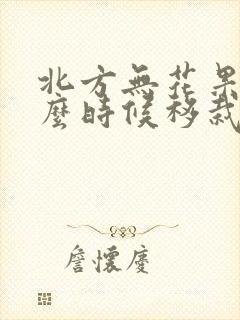 北方無花果
麼時候移栽
詹懷慶